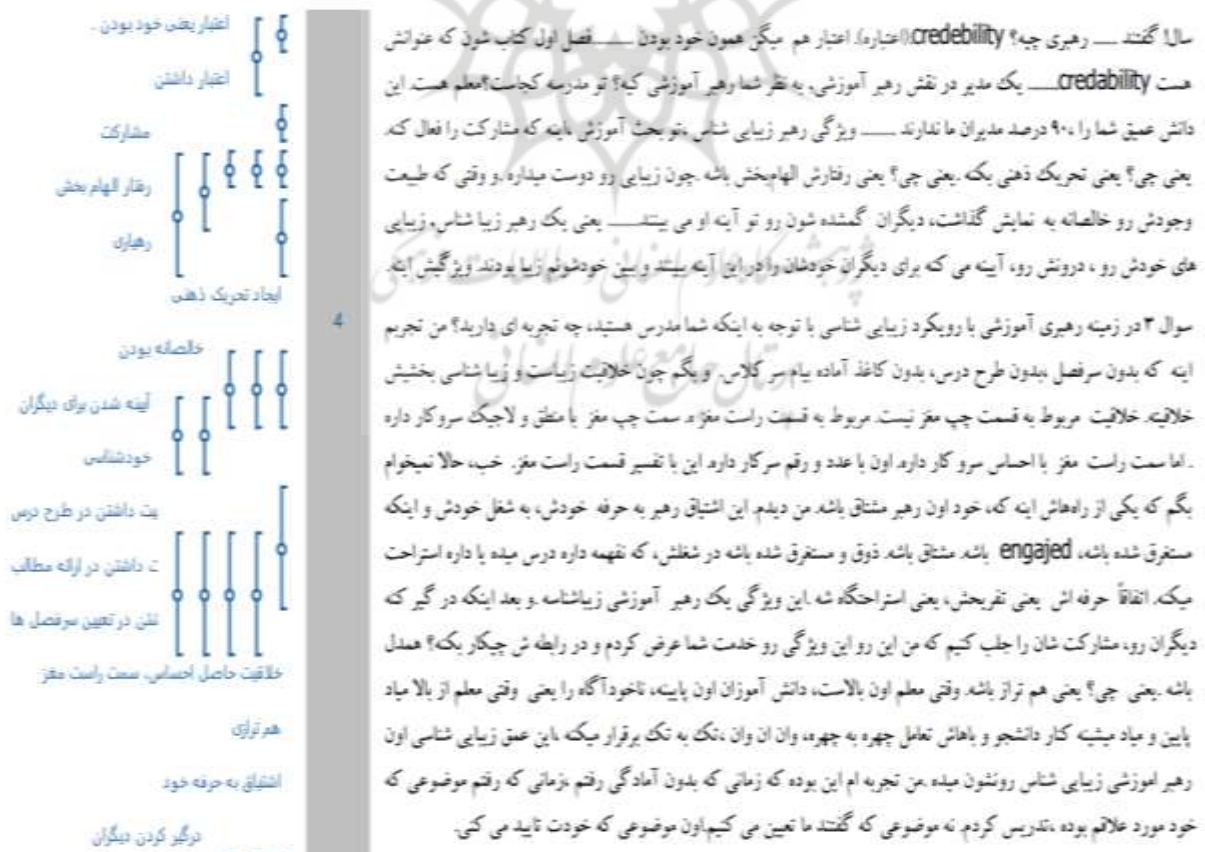 سال! گفتند ـــــ رهبری چیه؟ credebility(اعتباره). اعتبار هم میگن همون خود بودن ـــــــ فصل اول کتاب شون که عنوانش
هست credability ـــــــ یک مدیر در نقش رهبر آموزشی، به نظر شما رهبر آموزشی کیه؟ تو مدرسه کجاست؟معلم هست. این
دانش عمیق شما را ،۹۰ درصد مدیران ما ندارند ـــــــ ویژگی رهبر زیبایی شناس ،تو بحث آموزش ،اینه که مشارکت را فعال کنه.
یعنی چی؟ یعنی تحریک ذهنی بکنه .یعنی چی؟ یعنی رفتارش الهام‌بخش باشه .چون زیبایی رو دوست میداره .و وقتی که طبیعت
وجودش رو خالصانه به نمایش گذاشت، دیگران گمشده شون رو تو آینه او می بینند ـــــــ یعنی یک رهبر زیبا شناس، زیبایی
های خودش رو ، درونش رو، آیینه می کنه برای دیگران خودشان را در این آینه ببینند و ببین خودشونم زیبا بودند. ویژگیش اینه.
سوال ۳ در زمینه رهبری آموزشی با رویکرد زیبایی شناسی با توجه به اینکه شما مدرس هستید، چه تجربه ای دارید؟ من تجربم
اینه که بدون سرفصل ،بدون طرح درس، بدون کاغذ آماده بیام سر کلاس. و بگم چون خلاقیت زیباست و زیبا شناسی بخشیش
خلاقیته. خلاقیت مربوط به قسمت چپ مغز نیست. مربوط به قسمت راست مغزه. سمت چپ مغز با منطق و لاجیک سروکار داره
. اما سمت راست مغز با احساس سرو کار داره. اون با عدد و رقم سرکار داره. این با تفسیر قسمت راست مغز. خب، حالا نمیخوام
بگم که یکی از راه‌هاش اینه که، خود اون رهبر مشتاق باشه. من دیدم. این اشتیاق رهبر به حرفه خودش، به شغل خودش و اینکه
مستغرق شده باشه، engajed باشه. مشتاق باشه. ذوق و مستغرق شده باشه در شغلش، که نفهمه داره درس میده یا داره استراحت
میکنه. اتفاقاً حرفه اش یعنی تفریحش، یعنی استراحتگاه شه .این ویژگی یک رهبر آموزشی زیباشناسه .و بعد اینکه در گیر کنه
دیگران رو، مشارکت شان را جلب کنیم که من این رو این ویژگی رو خدمت شما عرض کردم و در رابطه ش چیکار بکنه؟ همدل
باشه .یعنی چی؟ یعنی هم تراز باشه. وقتی معلم اون بالاست، دانش آموزان اون پایینه، ناخودآگاه را یعنی وقتی معلم از بالا میاد
پایین و میاد میشینه کنار دانشجو و باهاش تعامل چهره به چهره، وان ان وان ،تک به تک برقرار میکنه ،این عمق زیبایی شناسی اون
رهبر اموزشی زیبایی شناس رونشون میده .من تجربه ام این بوده که زمانی که بدون آمادگی رفتم ،زمانی که رفتم موضوعی که
خود مورد علاقم بوده ،تدریس کردم. نه موضوعی که گفتند ما تعیین می کنیم.اون موضوعی که خودت تایید می کنی.
4
اعتبار یعنی خود بودن .
اعتبار داشتن
مشارکت
رفتار الهام بخش
رهیاری
ایجاد تحریک ذهنی
خالصانه بودن
آیینه شدن برای دیگران
خودشناسی
یت داشتن در طرح درس
ت داشتن در ارائه مطالب
شتن در تعیین سرفصل ها
خلاقیت حاصل احساس، سمت راست مغز
هم ترازی
اشتیاق به حرفه خود
درگیر کردن دیگران